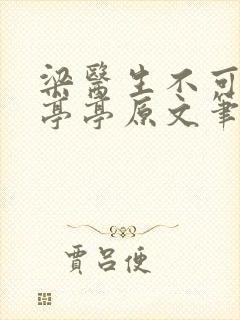 梁醫生不可
亭亭原文筆
賈呂便